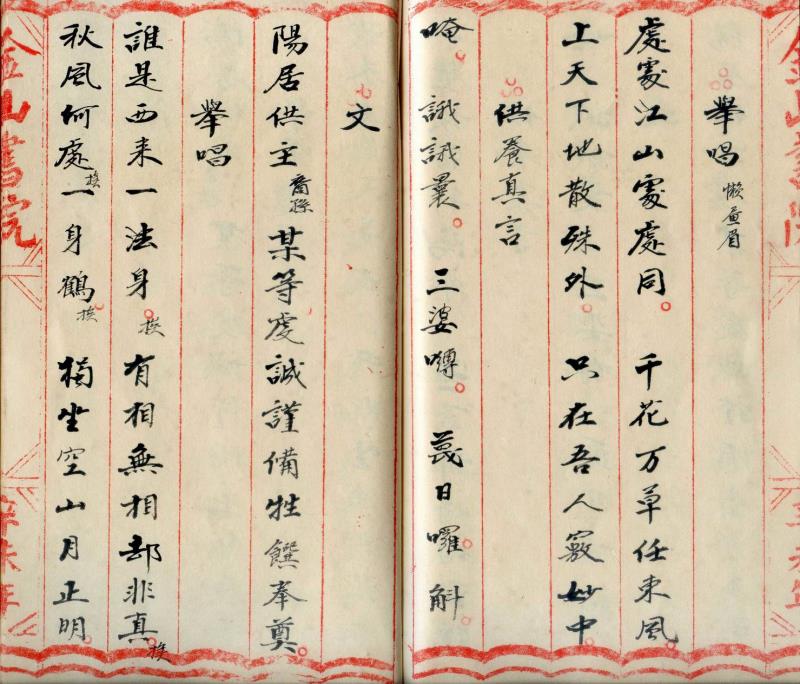 舉唱 懶画眉
處處江山處處同。 千花万草任東風。
上天下地散殊外。 只在吾人竅妙中
供養真言
唵。 誐誐曩。 三婆嚩。 韈日囉斛
文
陽居供主 裔孫 某等虔誠謹備牲饌奉奠。
舉唱
誰是西来一法身。挨 有相無相却非真。挨
秋風何處挨一身鶴。挨 獨坐空山月正明。
金山書院
辛未年